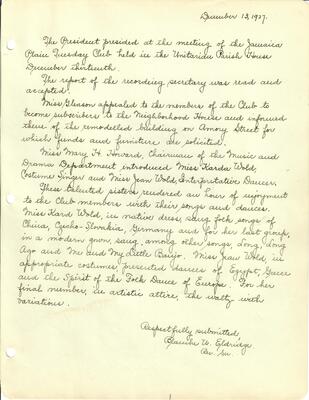 December 13, 1927.
The President presided at the meeting of the Jamaica
Plain Tuesday Club held in the Unitarian Parish House
December thirteenth.
The report of the recording secretary was read and
accepted.
Miss Gleason appealed to the members of the Club to
become subscribers to the Neighborhood House and informed
them of the remodelled building on Amory Street for
which funds and furniture are solicited.
Miss Mary H. Howard, chairman of the Music and
Drama Department introduced Miss Karda Wold,
Costume Singer and Miss Jean Wold, Interpretative Dancer.
These talented sisters rendered an hour of enjoyment
to the Club members with their songs and dances.
Miss Kard Wold, in native dress, sang folk songs of
China, Czecho-Slovakia, Germany and for her last group,
in a modern gown, sang, among other songs, Long, Long
Ago and Me and My Little Banjo. Miss Jean Wold, in
appropriate costumes presented dances of Egypt, Greece
and the Spirit of the Folk Dance of Europe. For her
final number, in artistic attire, the waltz with
variations.
Respectfully submitted,
Blanche W. Eldridge